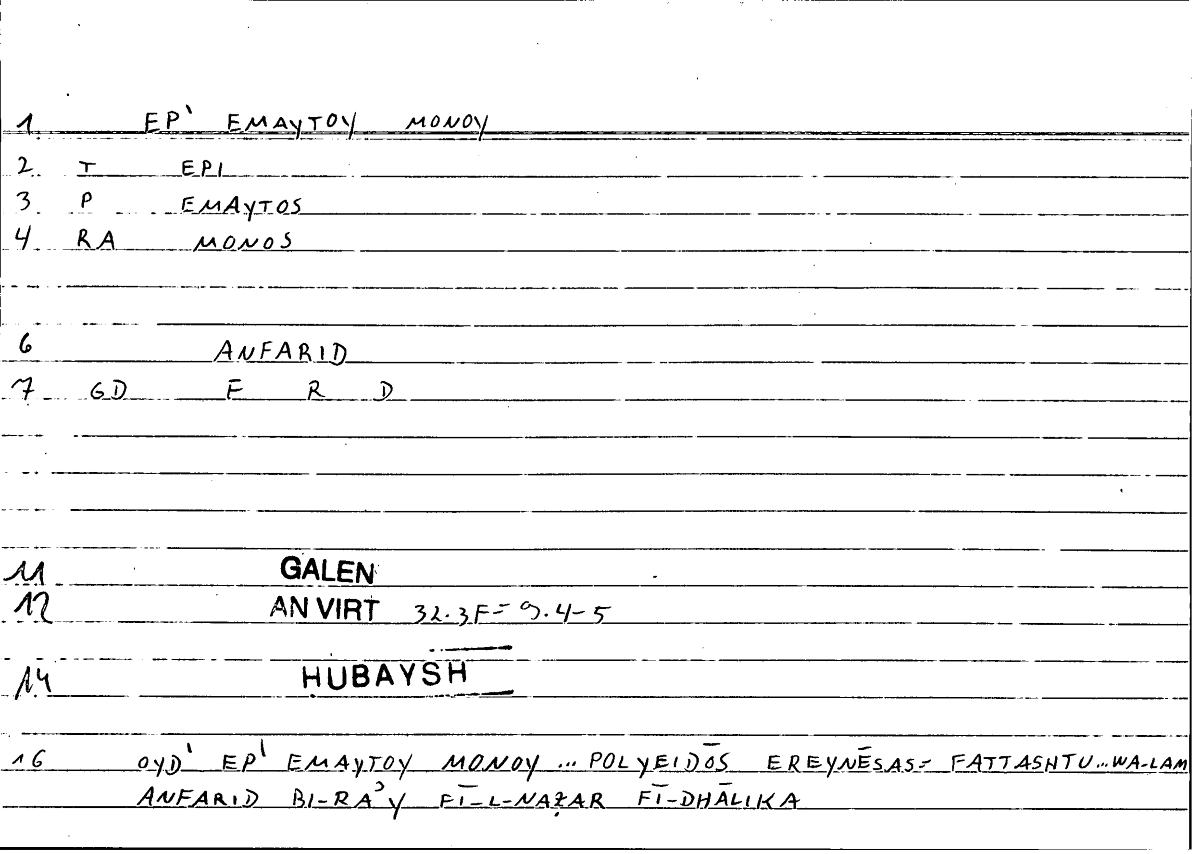 1 EP' EMAYTOY MONOY
2. T EPI
3. P EMAYTOS
4 RA MONOS
6 ANFARID
7 GD F R D
11 GALEN
12 AN VIRT 32.3F = 9.4-5
14 HUBAYSH
16 OYD' EP' EMAYTOY MONOY ... POLYEIDŌS EREYNĒSAS = FATTASHTU ... WA-LAM
ANFARID BI-RAʾY FĪ-L-NAẒAR FĪ-DHĀLIKA